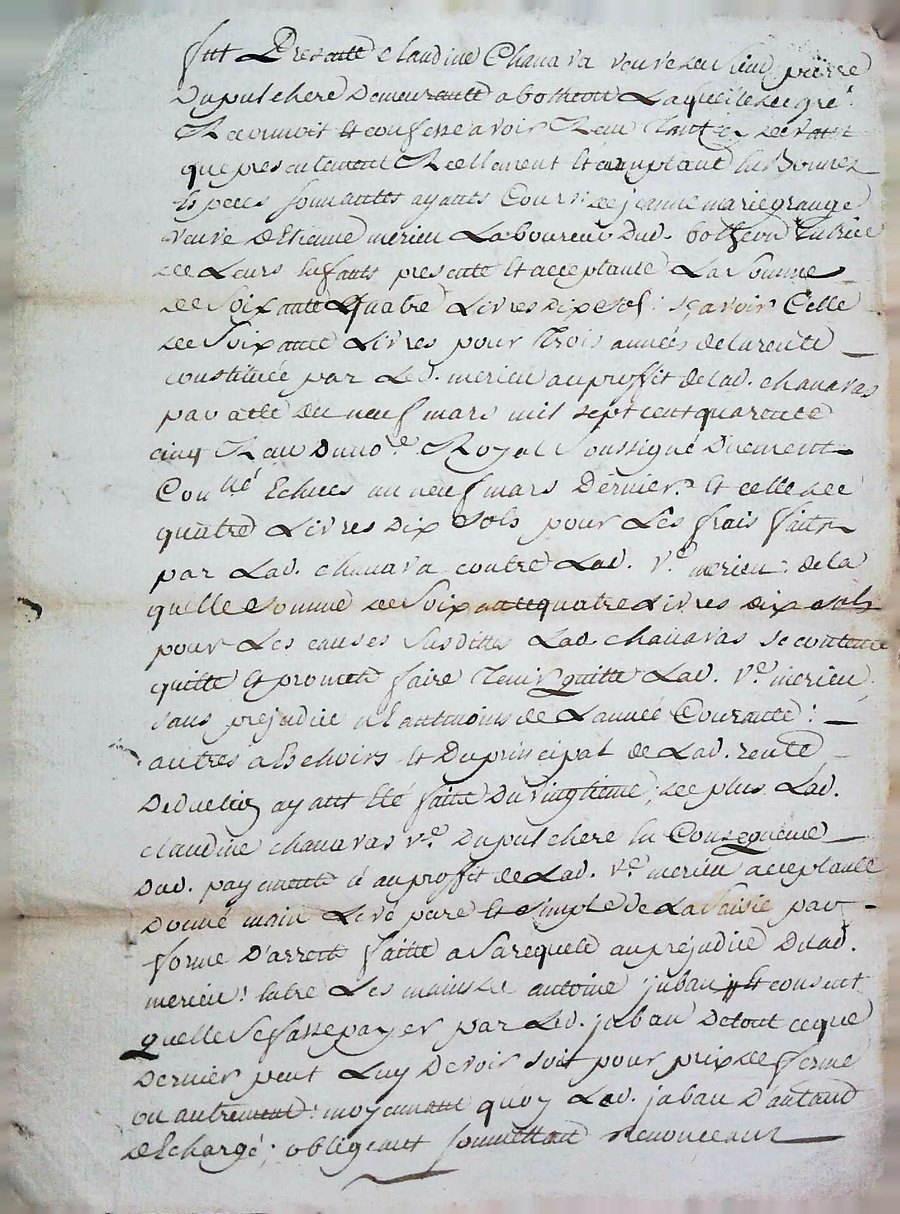 fut Presente Claudine Chanava veuve de sieur pierre
Dupulchere Demeurante a botheon Laquelle de gré
Reconnoit Et confesse avoir Reçu tant cy devant
que presentement Reellement Et comptant En Bonnes
Especes sonnantes ayants Cours de jeanne marie grange
veuve d'Etienne merieu Laboureur Dud. bothéon tutrice
de Leurs Enfants presente Et acceptante La Somme
de Soixante Quatre Livres dix sols : sçavoir Celle
de Soixante Livres pour Trois années de la rente
constituée par Led. merieu au proffit de lad. chanavas
par acte du neuf mars mil sept cent quarente
cinq Reçu Du no.re Royal Soussigné Duement
Conllé Echues au neuf mars Dernier. Et celle de
quatre Livres Dix Sols pour Les frais faits
par Lad. chanava contre Lad. v.e merieu : de la
quelle Somme de Soixante quatre Livres dix sols
pour Les causes Susdittes Lad. chanavas se contente
quitte Et promet faire Tenir Quitte Lad. v.e merieu
sans prejudice neantmoins de L'année Courante :
autres a Echoirs Et Du principal de Lad. rente
Deduction ayant Eté faitte Du vingtieme ; de plus Lad.
claudine chanavas v.e Dupulchere En Consequence
Dud. payement a au proffit de Lad. v.e merieu acceptante
Donné main Levé pure Et simple de La Saisie par
forme D'arrest faitte a Sa requete au préjudice Dud.
merieu ! Entre Les mains de antoine jaban Et consent
Quelle Se fasse payer par Led. jaban De tout ce que
Dernier peut Luy Devoir soit pour prix de ferme
ou autrement : moyenant quoy Led. jaban D'autand
dEchargé ; obligeant soumettant renonceant